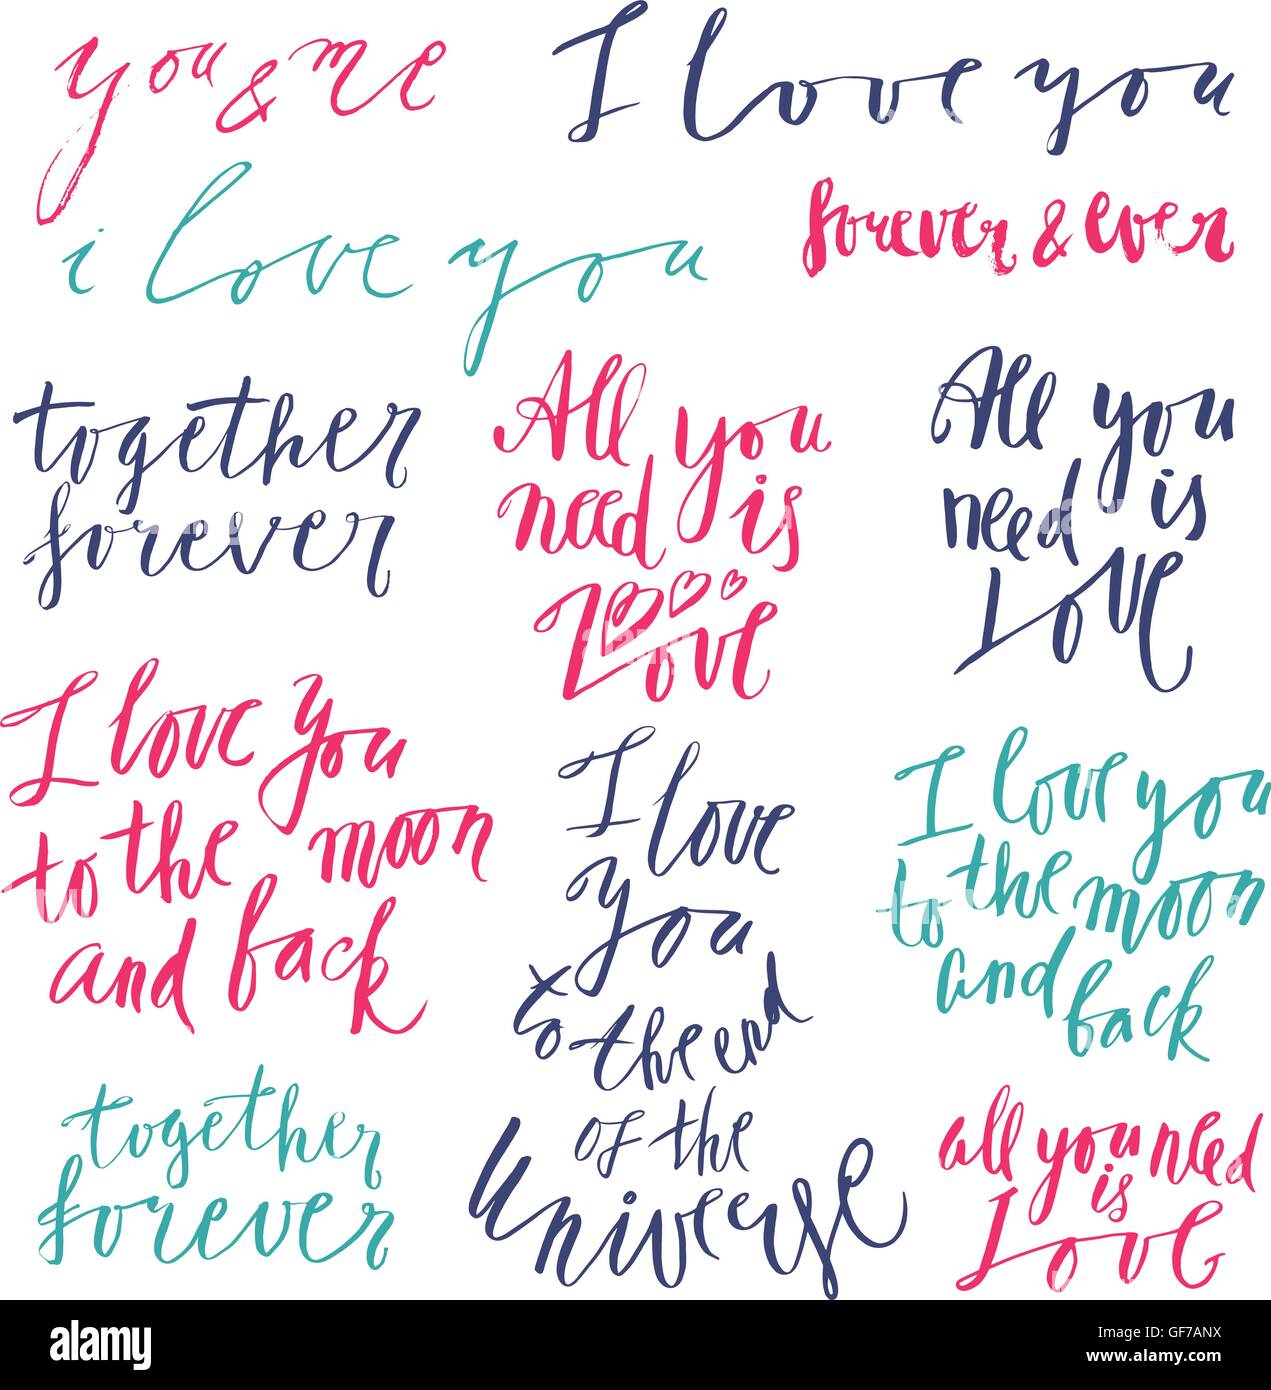 you & me
I love you
i love you
forever & ever
together
forever
All you
need is
Love
All you
need is
Love
I love you
to the moon
and back
I love
you
to the end
of the
Universe
I love you
to the moon
and
back
together
forever
all you need
is
Love
alamy stock photo
GF7ANX
www.alamy.com